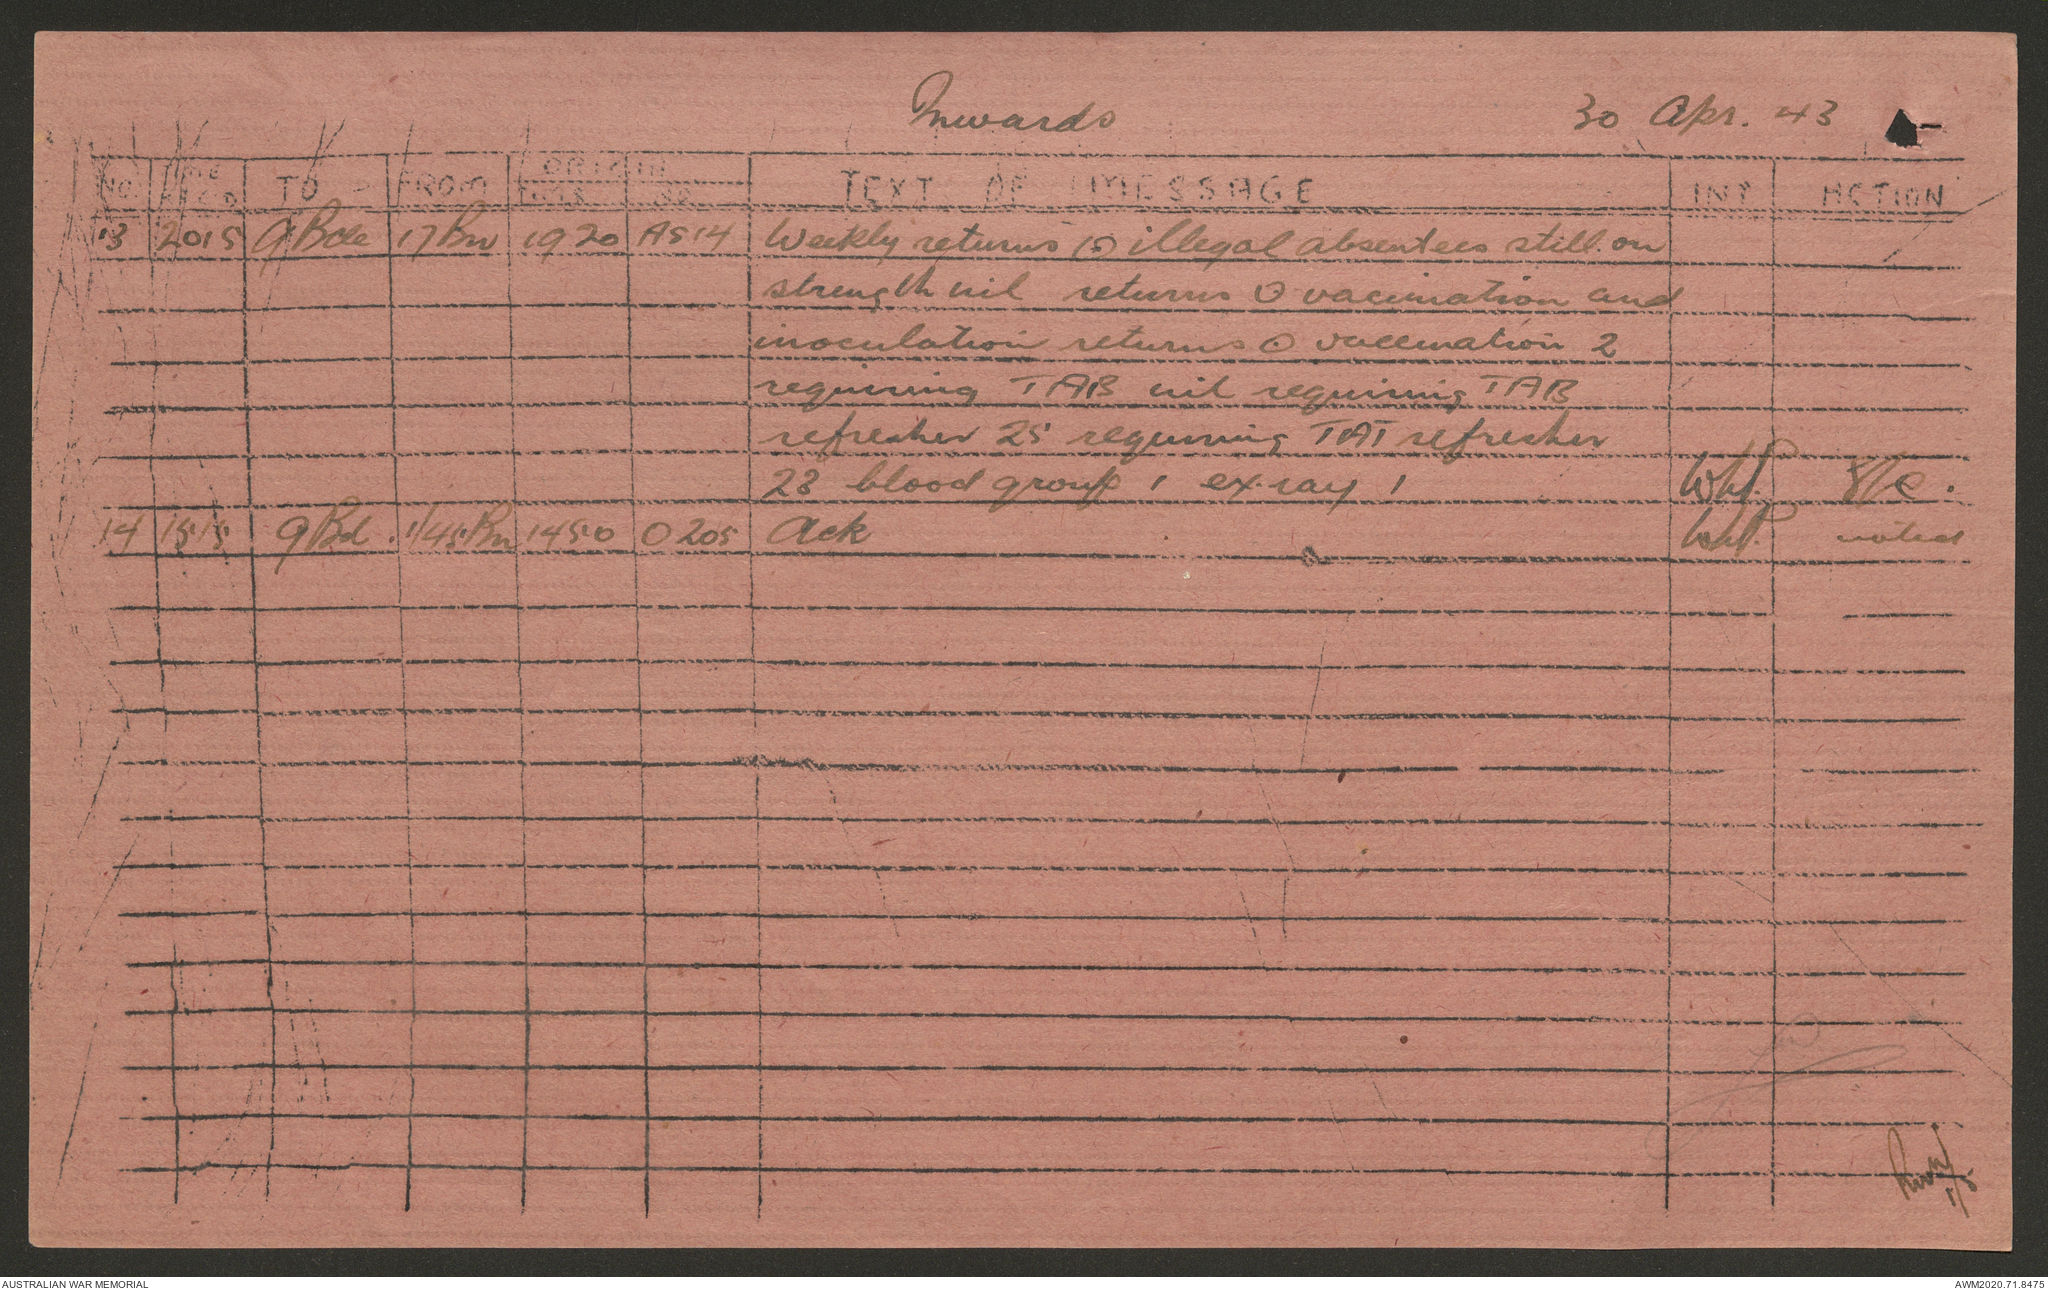 Inwards 30 Apr. 43
NO. TIME REC'D TO FROM ORIGIN TEXT OF MESSAGE INT ACTION
TIME NO
13 2015 9 Bde 17 Bn 1920 AS14 Weekly returns ⊙ illegal absentees still on
strength nil returns ⊙ vaccination and
inoculation returns ⊙ vaccination 2
requiring TAB nil requiring TAB
refresher 25 requiring TAT refresher
23 blood group 1 ex-ray 1
14 1515 9 Bd 1/45 Bn 1450 O 205 Ack noted
1/5
AUSTRALIAN WAR MEMORIAL AWM2020.71.8475